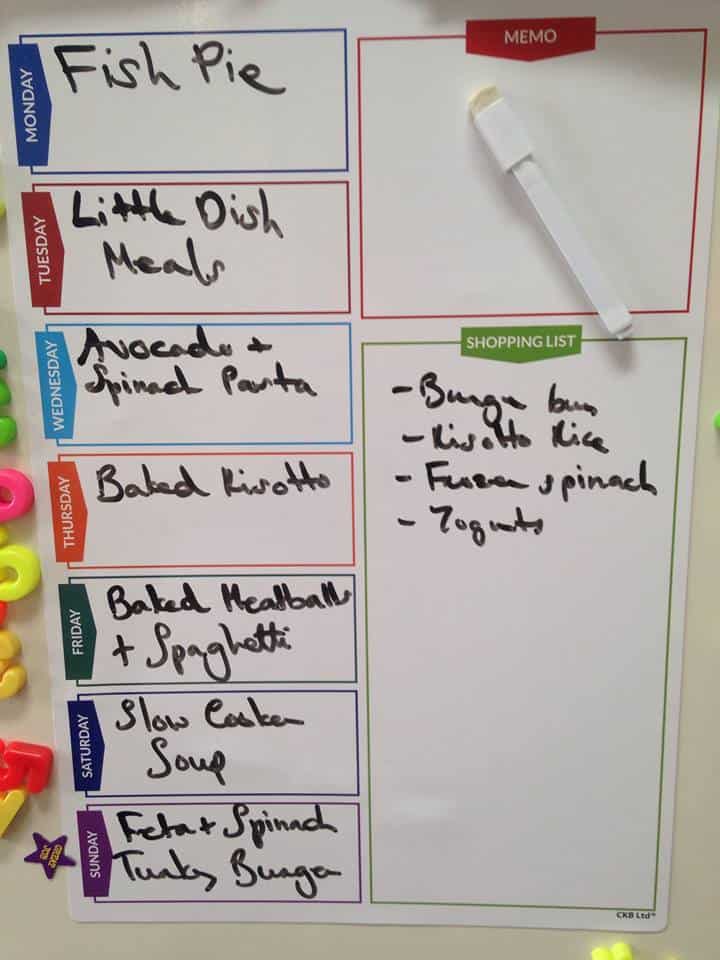 MONDAY
Fish Pie
TUESDAY
Little Dish
Meals
WEDNESDAY
Avocado +
Spinach Pasta
THURSDAY
Baked Risotto
FRIDAY
Baked Meatballs
+ Spaghetti
SATURDAY
Slow Cooker
Soup
SUNDAY
Feta + Spinach
Turkey Burger
MEMO
SHOPPING LIST
- Burger buns
- Risotto Rice
- Frozen spinach
- Yogurts
CKB Ltd™